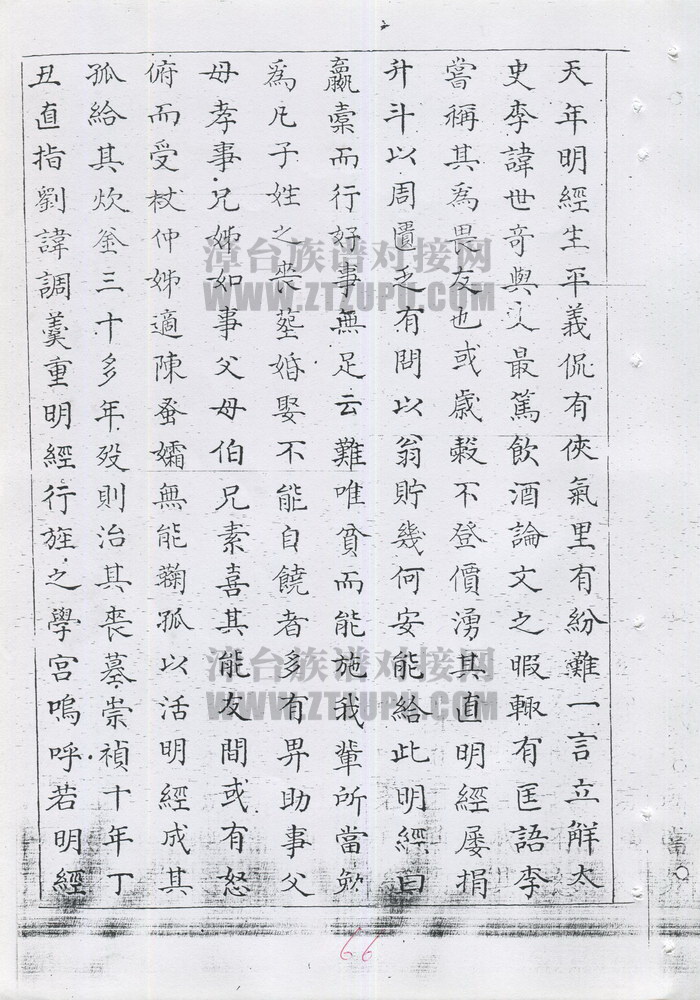 天年明經生平義侃有俠氣里有紛難一言立解太
史李諱世奇與人最篤飲酒論文之暇輙有匡語李
嘗稱其為畏友也或歲穀不登價湧其直明經屡捐
升斗以周匱乏有問以翁貯幾何安能給此明經曰
贏橐而行好事無足云難唯貧而能施我輩所當勉
為凢子姓之丧塟婚娶不能自饒者多有畀助事父
母孝事兄姊如事父母伯兄素喜其能友間或有怒
俯而受杖仲姊適陳蚤孀無能鞠孤以活明經成其
孤給其炊釜三十多年歿則治其喪墓崇禎十年丁
丑直指劉諱調羹重明經行旌之學宮嗚呼若明經
漳台族谱对接网
WWW.ZTZUPU.COM
漳台族谱对接网
WWW.ZTZUPU.COM
66